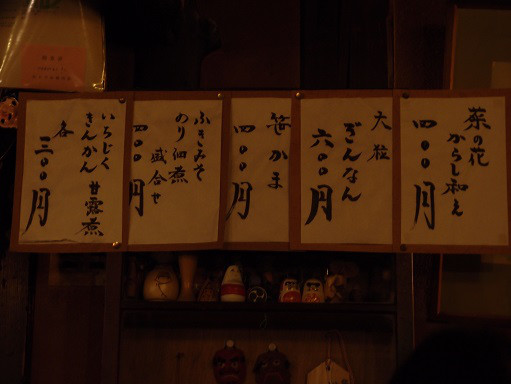 菜の花
からし和え
四〇〇円
大粒
ぎんなん
六〇〇円
笹かま
四〇〇円
ふきみそ
のり佃煮
盛合せ
四〇〇円
いちじく
きんかん 甘露煮
各
三〇〇円